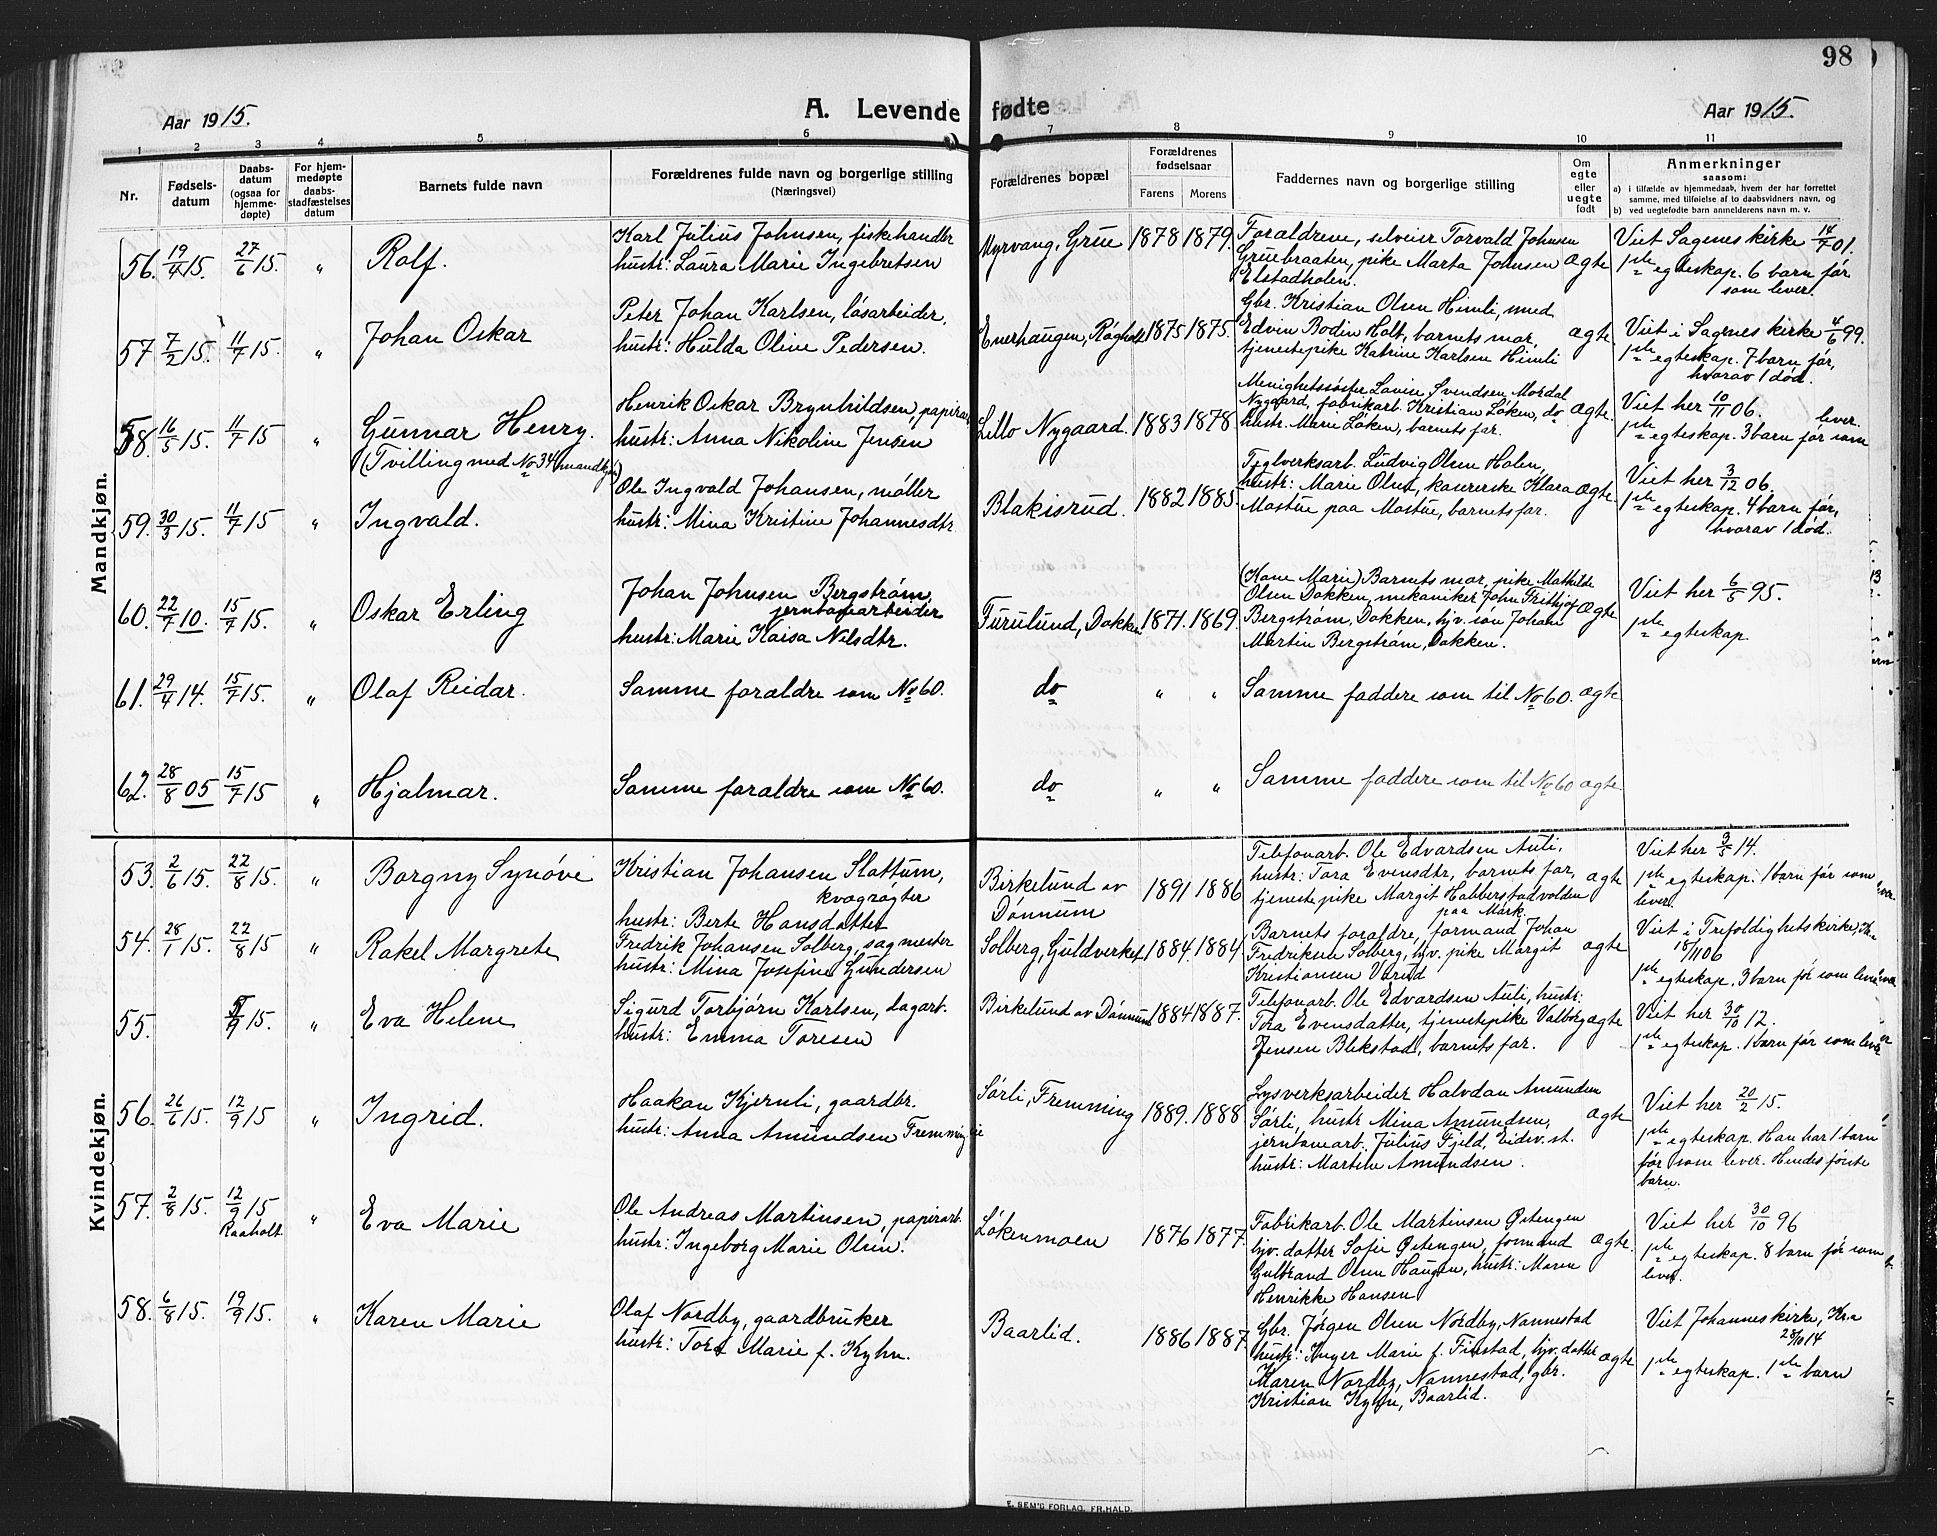 98
Aar 1915.
A. Levende fødte
Aar 1915.
1 2 3 4 5 6 7 8 9 10 11
Nr.
Fødsels-
datum
Daabs-
datum
(ogsaa for
hjemme-
døpte)
For hjem-
medøpte
daabs-
stadfæstelses
datum
Barnets fulde navn
Forældrenes fulde navn og borgerlige stilling
(Næringsvei)
Forældrenes bopæl
Forældrenes
fødselsaar
Farens Morens
Faddernes navn og borgerlige stilling
Om
egte
eller
uegte
født
Anmerkninger
saasom:
a) i tilfælde av hjemmedaab, hvem der har forrettet
samme, med tilføielse af to daabsvidners navn, og
b) ved uegtefødte børn anmelderens navn m. v.
Mandkjøn.
56. 19/4 15. 27/6 15. " Rolf.
Karl Julius Johnsen, fiskehandler
hustr: Laura Marie Ingebretsen
Myrvang, Grue 1878 1879.
Forældrene, selveier Torvald Johnsen
Gruebraaten, pike Marta Johnsen
Elstadholen.
ægte
Viet Sagenes kirke 14/7 01.
1ste egteskap. 6 barn før
som lever.
57. 7/2 15. 11/7 15. " Johan Oskar
Peter Johan Karlsen, løsarbeider,
hustr: Hulda Olive Pedersen.
Enerhaugen, Røgholt 1875 1875.
Gbr. Kristian Olsen Himli, med
Edvin Bodin Holt, barnets mor,
tjenestepike Katrine Karlsen Himli
ægte.
Viet i Sagenes kirke 4/6 99.
1ste egteskap. 7 barn før,
hvorav 1 død.
58. 16/5 15. 11/7 15 " Gunnar Henry.
(Tvilling med No 34 mandkjøn)
Henrik Oskar Brynhildsen, papirarb.
hustr: Anna Nikoline Jensen
Lillo Nygaard. 1883 1878
Menighetssøster Lovise Svendsen, Mordal
Nygaard, fabrikarb. Kristian Løken, do
hustr. Marie Løken, barnets far.
ægte.
Viet her 10/11 06.
1ste egteskap. 3 barn før som
lever.
59. 30/3 15. 11/7 15 " Ingvald.
Ole Ingvald Johansen, møller
hustr: Mina Kristine Johannesdtr
Blakisrud. 1882 1885.
Teglverksarb. Ludvig Olsen Holen,
hustr: Marie Olsen, kassererske Klara
Mostue paa Mostue, barnets far.
ægte.
Viet her 3/12 06.
1ste egteskap. 4 barn før,
hvorav 1 død.
60. 22/7 10. 15/7 15. " Oskar Erling
Johan Johnsen Bergstrøm,
jerntomearbeider
hustr: Marie Kaisa Nilsdtr.
Furulund, Dokken 1871. 1869.
(Kone Marie) Barnets mor, pike Mathilde
Olsen Dokken, mekaniker John Frithjof
Bergstrøm, Dokken, hjv. søn Johan
Martin Bergstrøm, Dokken.
ægte
Viet her 6/5 95.
1ste egteskap
61. 29/4 14. 15/7 15. " Olaf Reidar.
Samme forældre som No 60.
do " "
Samme faddere som til No 60. ægte
62. 28/8 05 15/7 15 " Hjalmar.
Samme forældre som No 60.
do " "
Samme faddere som til No 60 ægte.
Kvindekjøn.
53. 2/6 15. 22/8 15. " Borgny Synøve
Kristian Johansen Slattum,
kvægrøgter
hustr: Berte Hansdatter
Birkelund av
Dønnum
1891 1886
Telefonarb. Ole Edvardsen Auli,
hustr: Tora Evensdtr, barnets far,
tjenestepike Margit Habberstadvolden
paa Mork.
ægte
Viet her 3/5 14.
1ste egteskap. 1 barn før som
lever.
54. 28/7 15. 22/8 15 " Rakel Margrete
Fredrik Johansen Solberg, sagmester
hustr: Mina Josefine Gundersen
Solberg, Guldverket 1884. 1884.
Barnets forældre, formand Johan
Fredriksen Solberg, hjv. pike Margit
Kristiansen Varud
ægte
Viet i Trefoldighetskirke, Kr.a
18/11 06
1ste egteskap. 3 barn før som lever
55. 5/9 15. " Eva Helene
Sigurd Torbjørn Karlsen, dagarb.
hustr: Emma Toresen
Birkelund av Dønnum 1884 1887.
Telefonarb. Ole Edvardsen Auli, hustr:
Tora Evensdatter, tjenestepike Valborg
Jensen Blekstad, barnets far.
ægte
Viet her 30/10 12.
1ste egteskap. 1 barn før som lever
56. 26/6 15. 12/9 15 " Ingrid.
Haakan Kjernli, gaardbr.
hustr: Anna Amundsen Fremming
Sørli, Fremming 1889. 1888
Lysverksarbeider Halvdan Amundsen
Sørli, hustr Mina Amundsen,
jerntomearb. Julius Fjeld, Eidsv. st.
hustr: Martine Amundsen.
ægte
Viet her 20/2 15.
1ste egteskap. Han har 1 barn
før som lever. Hendes første
barn.
57. 2/8 15. 12/9 15
Raaholt
" Eva Marie
Ole Andreas Martinsen, papirarb.
hustr: Ingeborg Marie Olsen.
Løkenmoen 1876 1877.
Fabrikarb. Ole Martinsen Østengen
hjv. datter Sofie Østengen, formand
Gulbrand Olsen Haugen, hustr: Maren
Henrikke Hansen
ægte.
Viet her 30/10 96
1ste egteskap. 8 barn før som
lever.
58. 6/8 15. 19/9 15. " Karen Marie
Olaf Nordby, gaardbruker
hustr: Tora Marie f. Kyhn.
Baarlid. 1886 1887.
Gbr. Jørgen Olsen Nordby, Nannestad
hustr: Inger Marie f. Finstad, hjv. datter
Maren Nordby, Nannestad, gbr.
Kristian Kyhn, Baarlid.
ægte
Viet Johannes kirke, Kr.a
28/10 14
1ste egteskap. 1ste barn
E. SEM'S FORLAG, FR.HALD.